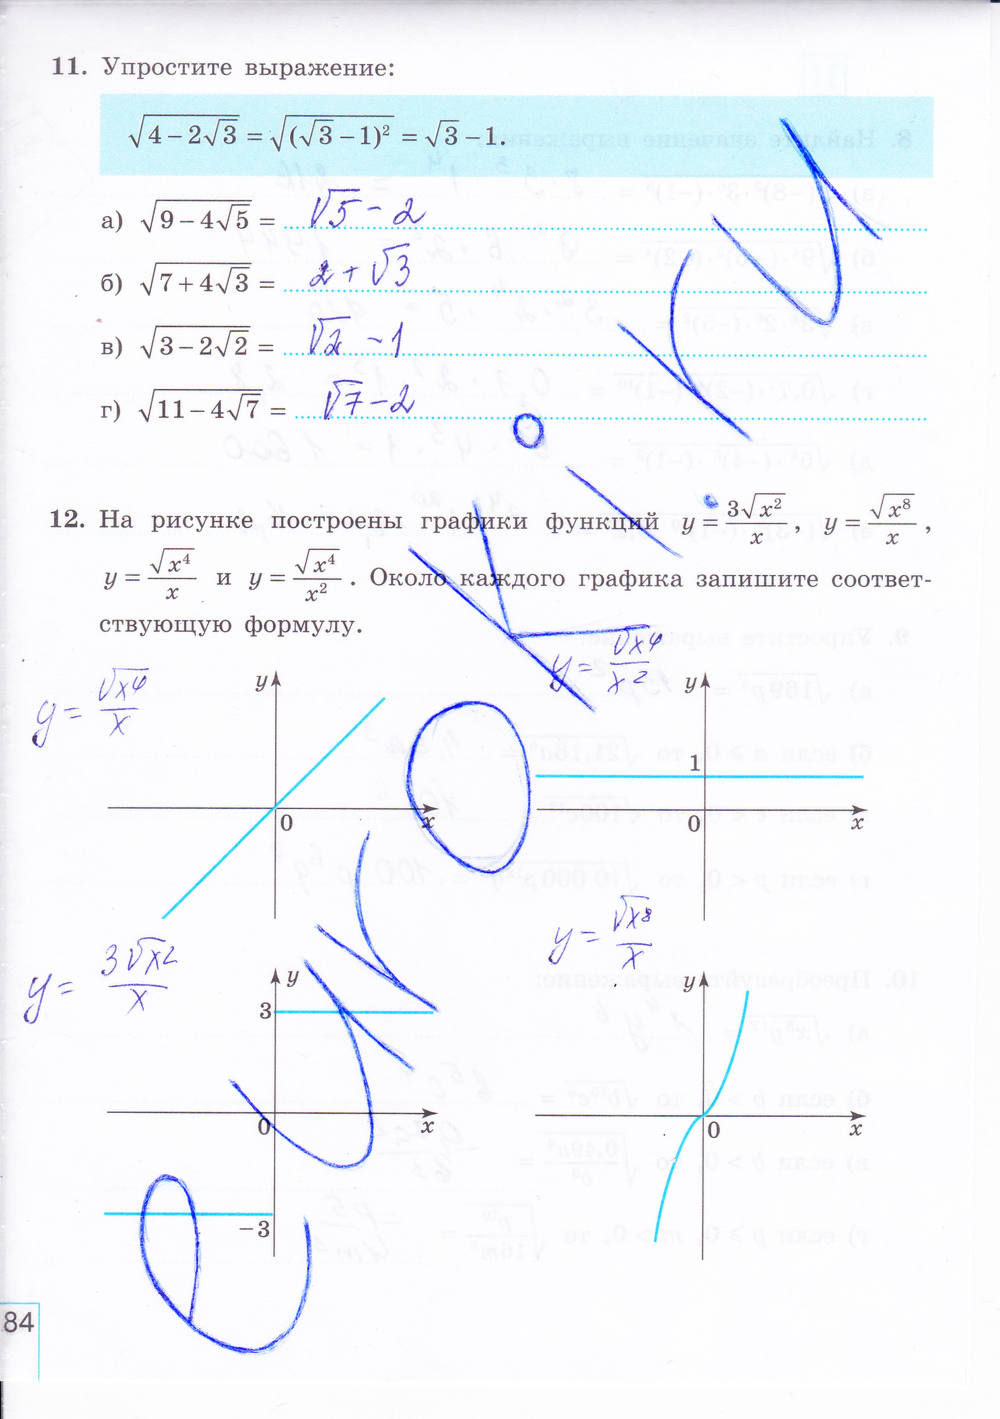 11. Упростите выражение:
√(4 − 2√3) = √((√3 − 1)²) = √3 − 1.
а) √(9 − 4√5) = √5 − 2
б) √(7 + 4√3) = 2 + √3
в) √(3 − 2√2) = √2 − 1
г) √(11 − 4√7) = √7 − 2
12. На рисунке построены графики функций y = 3√x²/x, y = √x⁸/x,
y = √x⁴/x и y = √x⁴/x². Около каждого графика запишите соответ-
ствующую формулу.
y = √x⁴/x
y
0
x
y = √x⁴/x²
y
1
0
x
y = 3√x²/x
y
3
0
x
−3
y = √x⁸/x
y
0
x
84